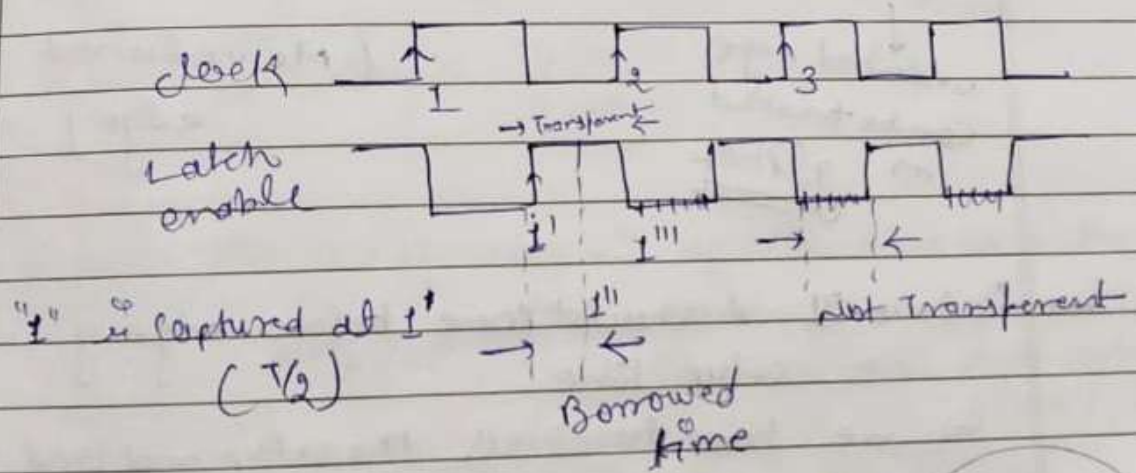 clock
1 2 3
→ Transparent ←
Latch
enable
1' 1'''
→ ←
"1" is captured at 1' 1'' Not Transparent
(T/2) → ←
Borrowed
time